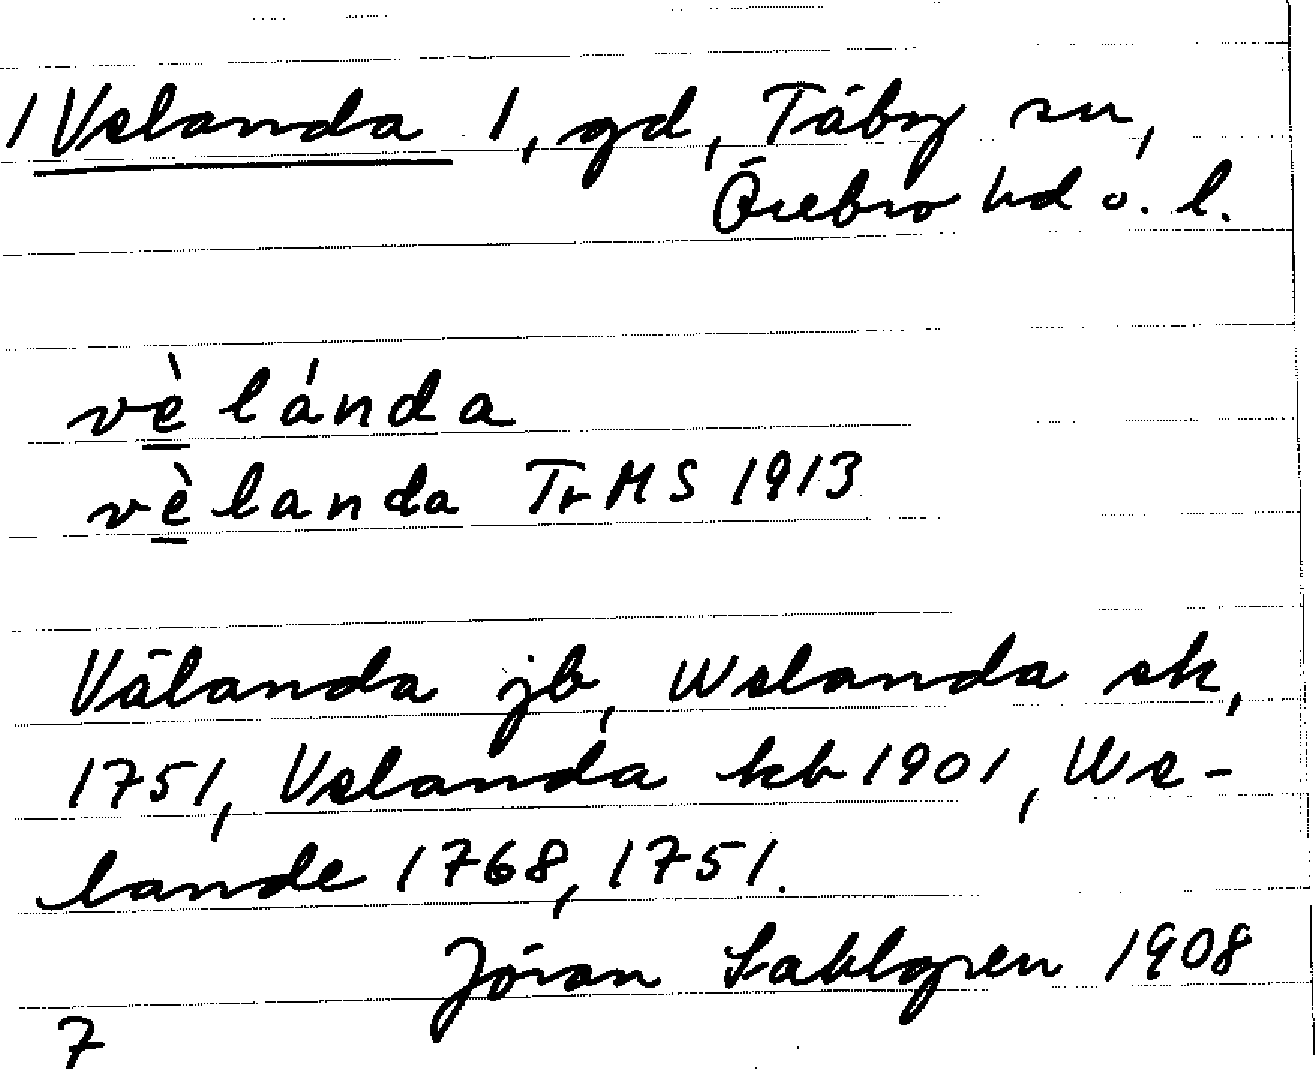 1 Velanda 1, gd, Täby sn,
Örebro hd o. l.
vè lánda
vèlanda TrMS 1913
Välanda jb, Welanda sk,
1751, Velanda kb 1901, We-
lande 1768, 1751.
Jöran Sahlgren 1908
7